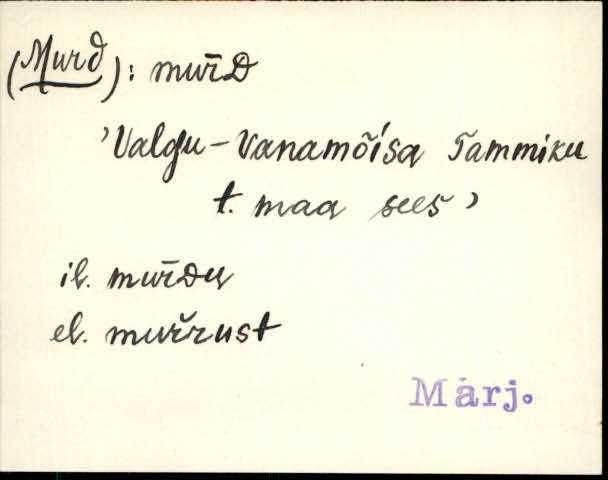 (Murd): mur̄D
'Valgu-Vanamõisa Tammiku
t. maa sees'
il. mur̄Du
el. muřrust
Märj.